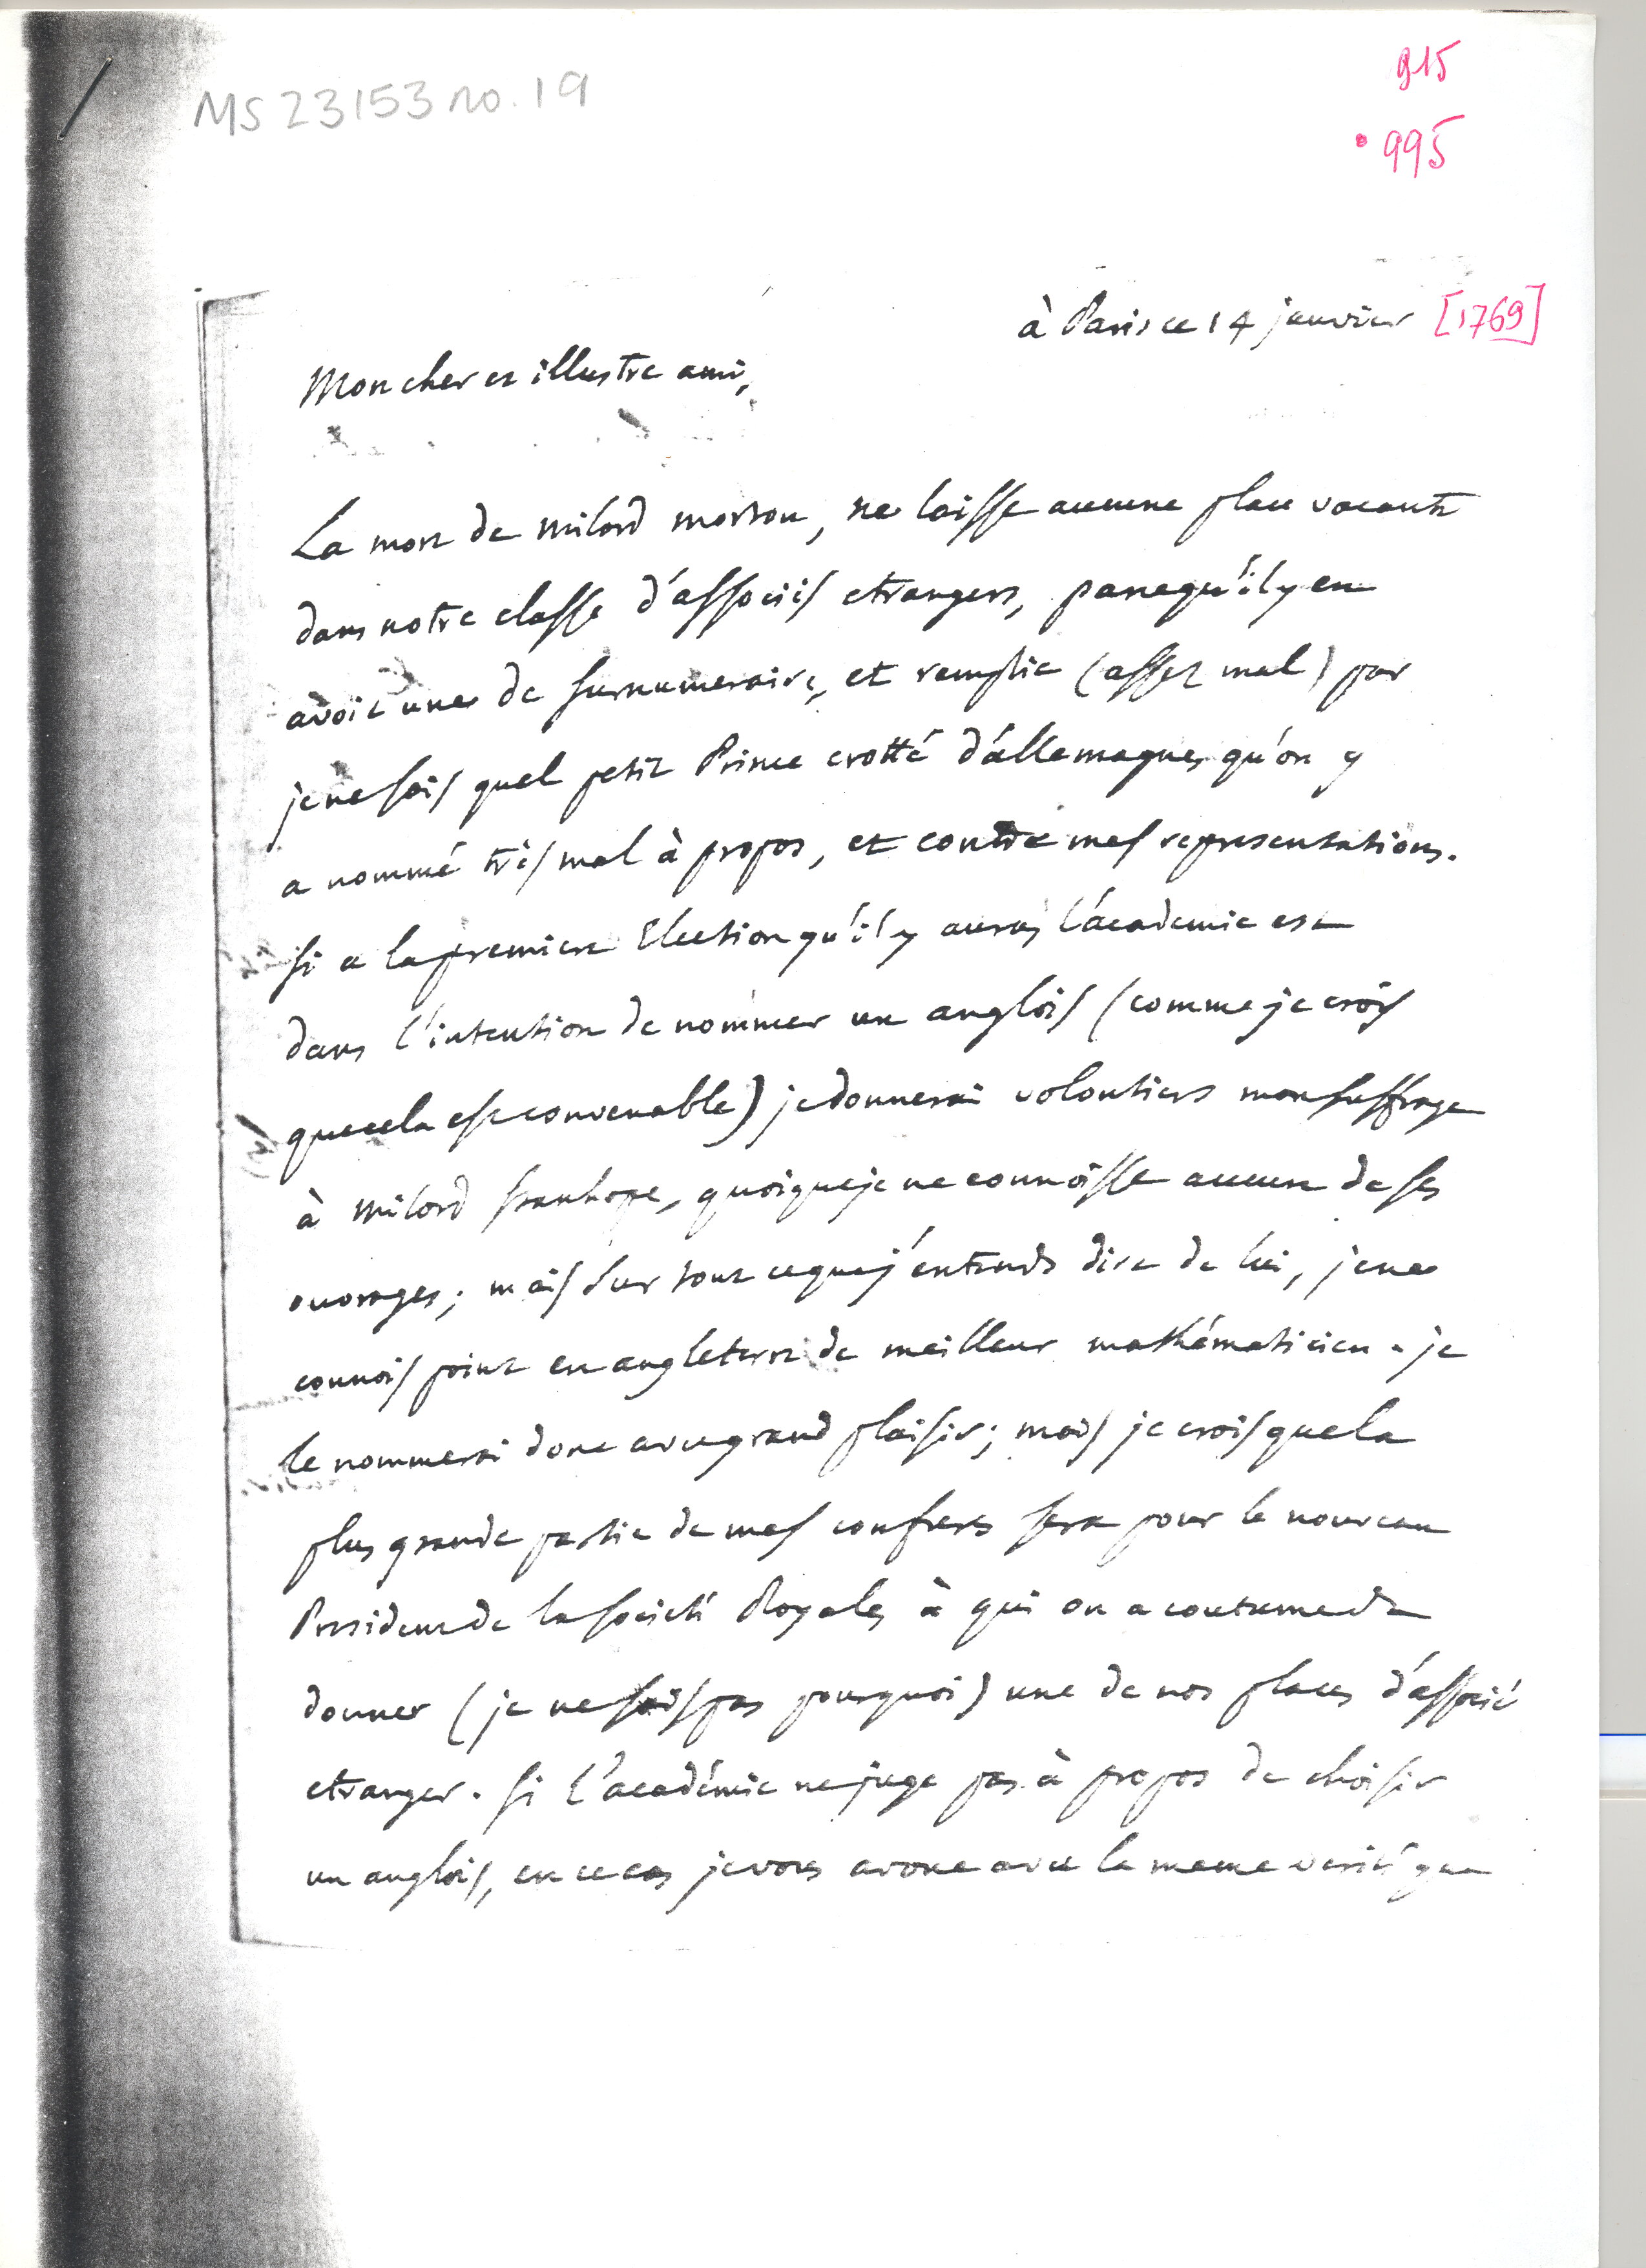 MS 23153 no. 19
915
995
à Paris ce 14 janvier [1769]
Mon cher et illustre ami,
La mort de milord morton, ne laisse aucune place vacante
dans notre classe d'associés etrangers, parcequ'il y en
avoit une de surnumeraire, et remplie (assez mal) par
je ne sais quel petit Prince crotté d'allemagne, qu'on y
a nommé très mal à propos, et contre mes representations.
Si a la premiere Election qu'il y aura, l'academie est
dans l'intention de nommer un anglois (comme je crois
que cela est convenable) je donnerai volontiers mon suffrage
à milord stanhope, quoique je ne connoisse aucun de ses
ouvrages; mais sur tout ce que j'entends dire de lui, je ne
connois point en angleterre de meilleur mathématicien. je
le nommerai donc avec grand plaisir; mais je crois que la
plus grande partie de mes confreres sera pour le nouveau
President de la societé Royale, à qui on a coutume de
donner (je ne sais pas pourquoi) une de nos places d'associé
etranger. Si l'académie ne juge pas à propos de choisir
un anglois, en ce cas je vous avoue avec la meme verité que